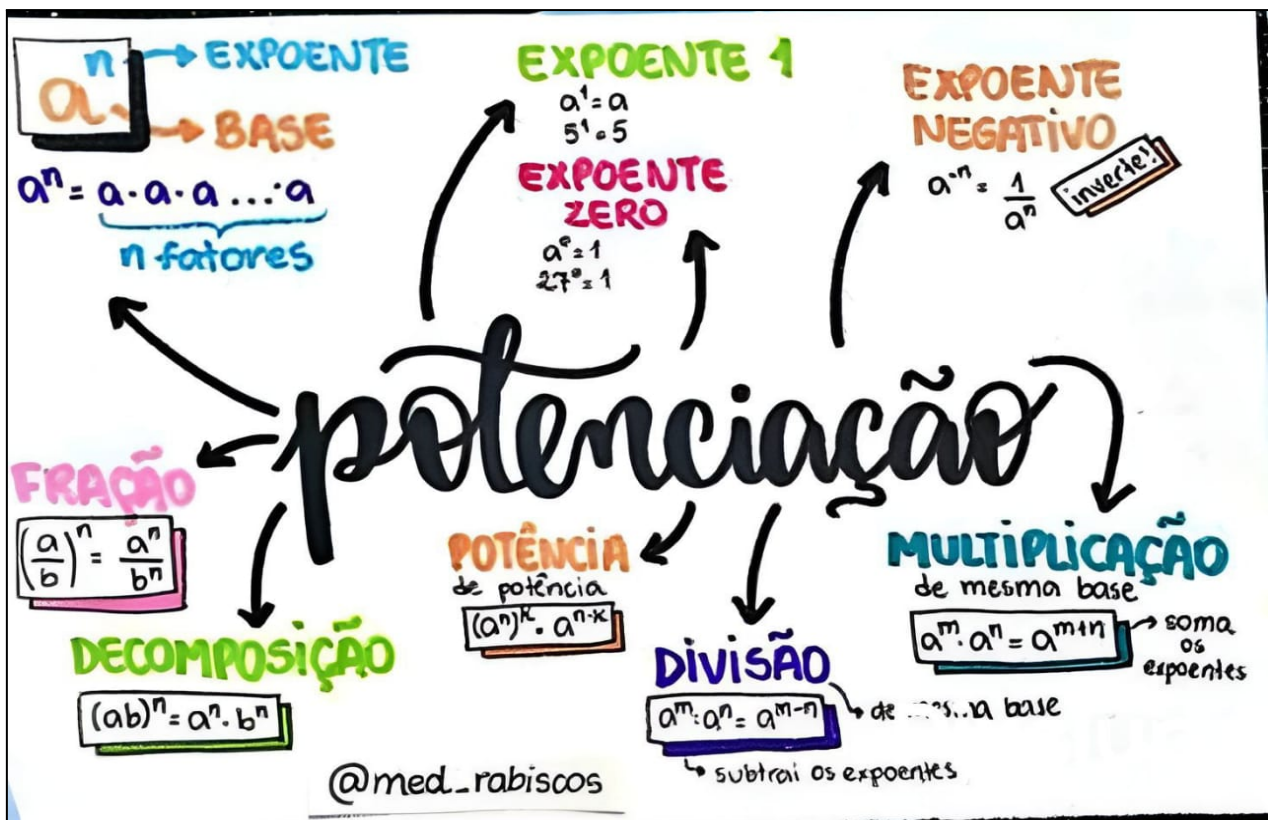 aⁿ → EXPOENTE
→ BASE
aⁿ = a · a · a ... · a
n fatores
EXPOENTE 1
a¹ = a
5¹ = 5
EXPOENTE
ZERO
a⁰ = 1
27⁰ = 1
EXPOENTE
NEGATIVO
a⁻ⁿ = 1/aⁿ
inverte!
potenciação
FRAÇÃO
(a/b)ⁿ = aⁿ/bⁿ
DECOMPOSIÇÃO
(ab)ⁿ = aⁿ · bⁿ
POTÊNCIA
de potência
(aⁿ)ᵏ = aⁿ·ᵏ
DIVISÃO
aᵐ : aⁿ = aᵐ⁻ⁿ
de base
subtrai os expoentes
MULTIPLICAÇÃO
de mesma base
aᵐ · aⁿ = aᵐ⁺ⁿ
soma
os
expoentes
@med_rabiscos